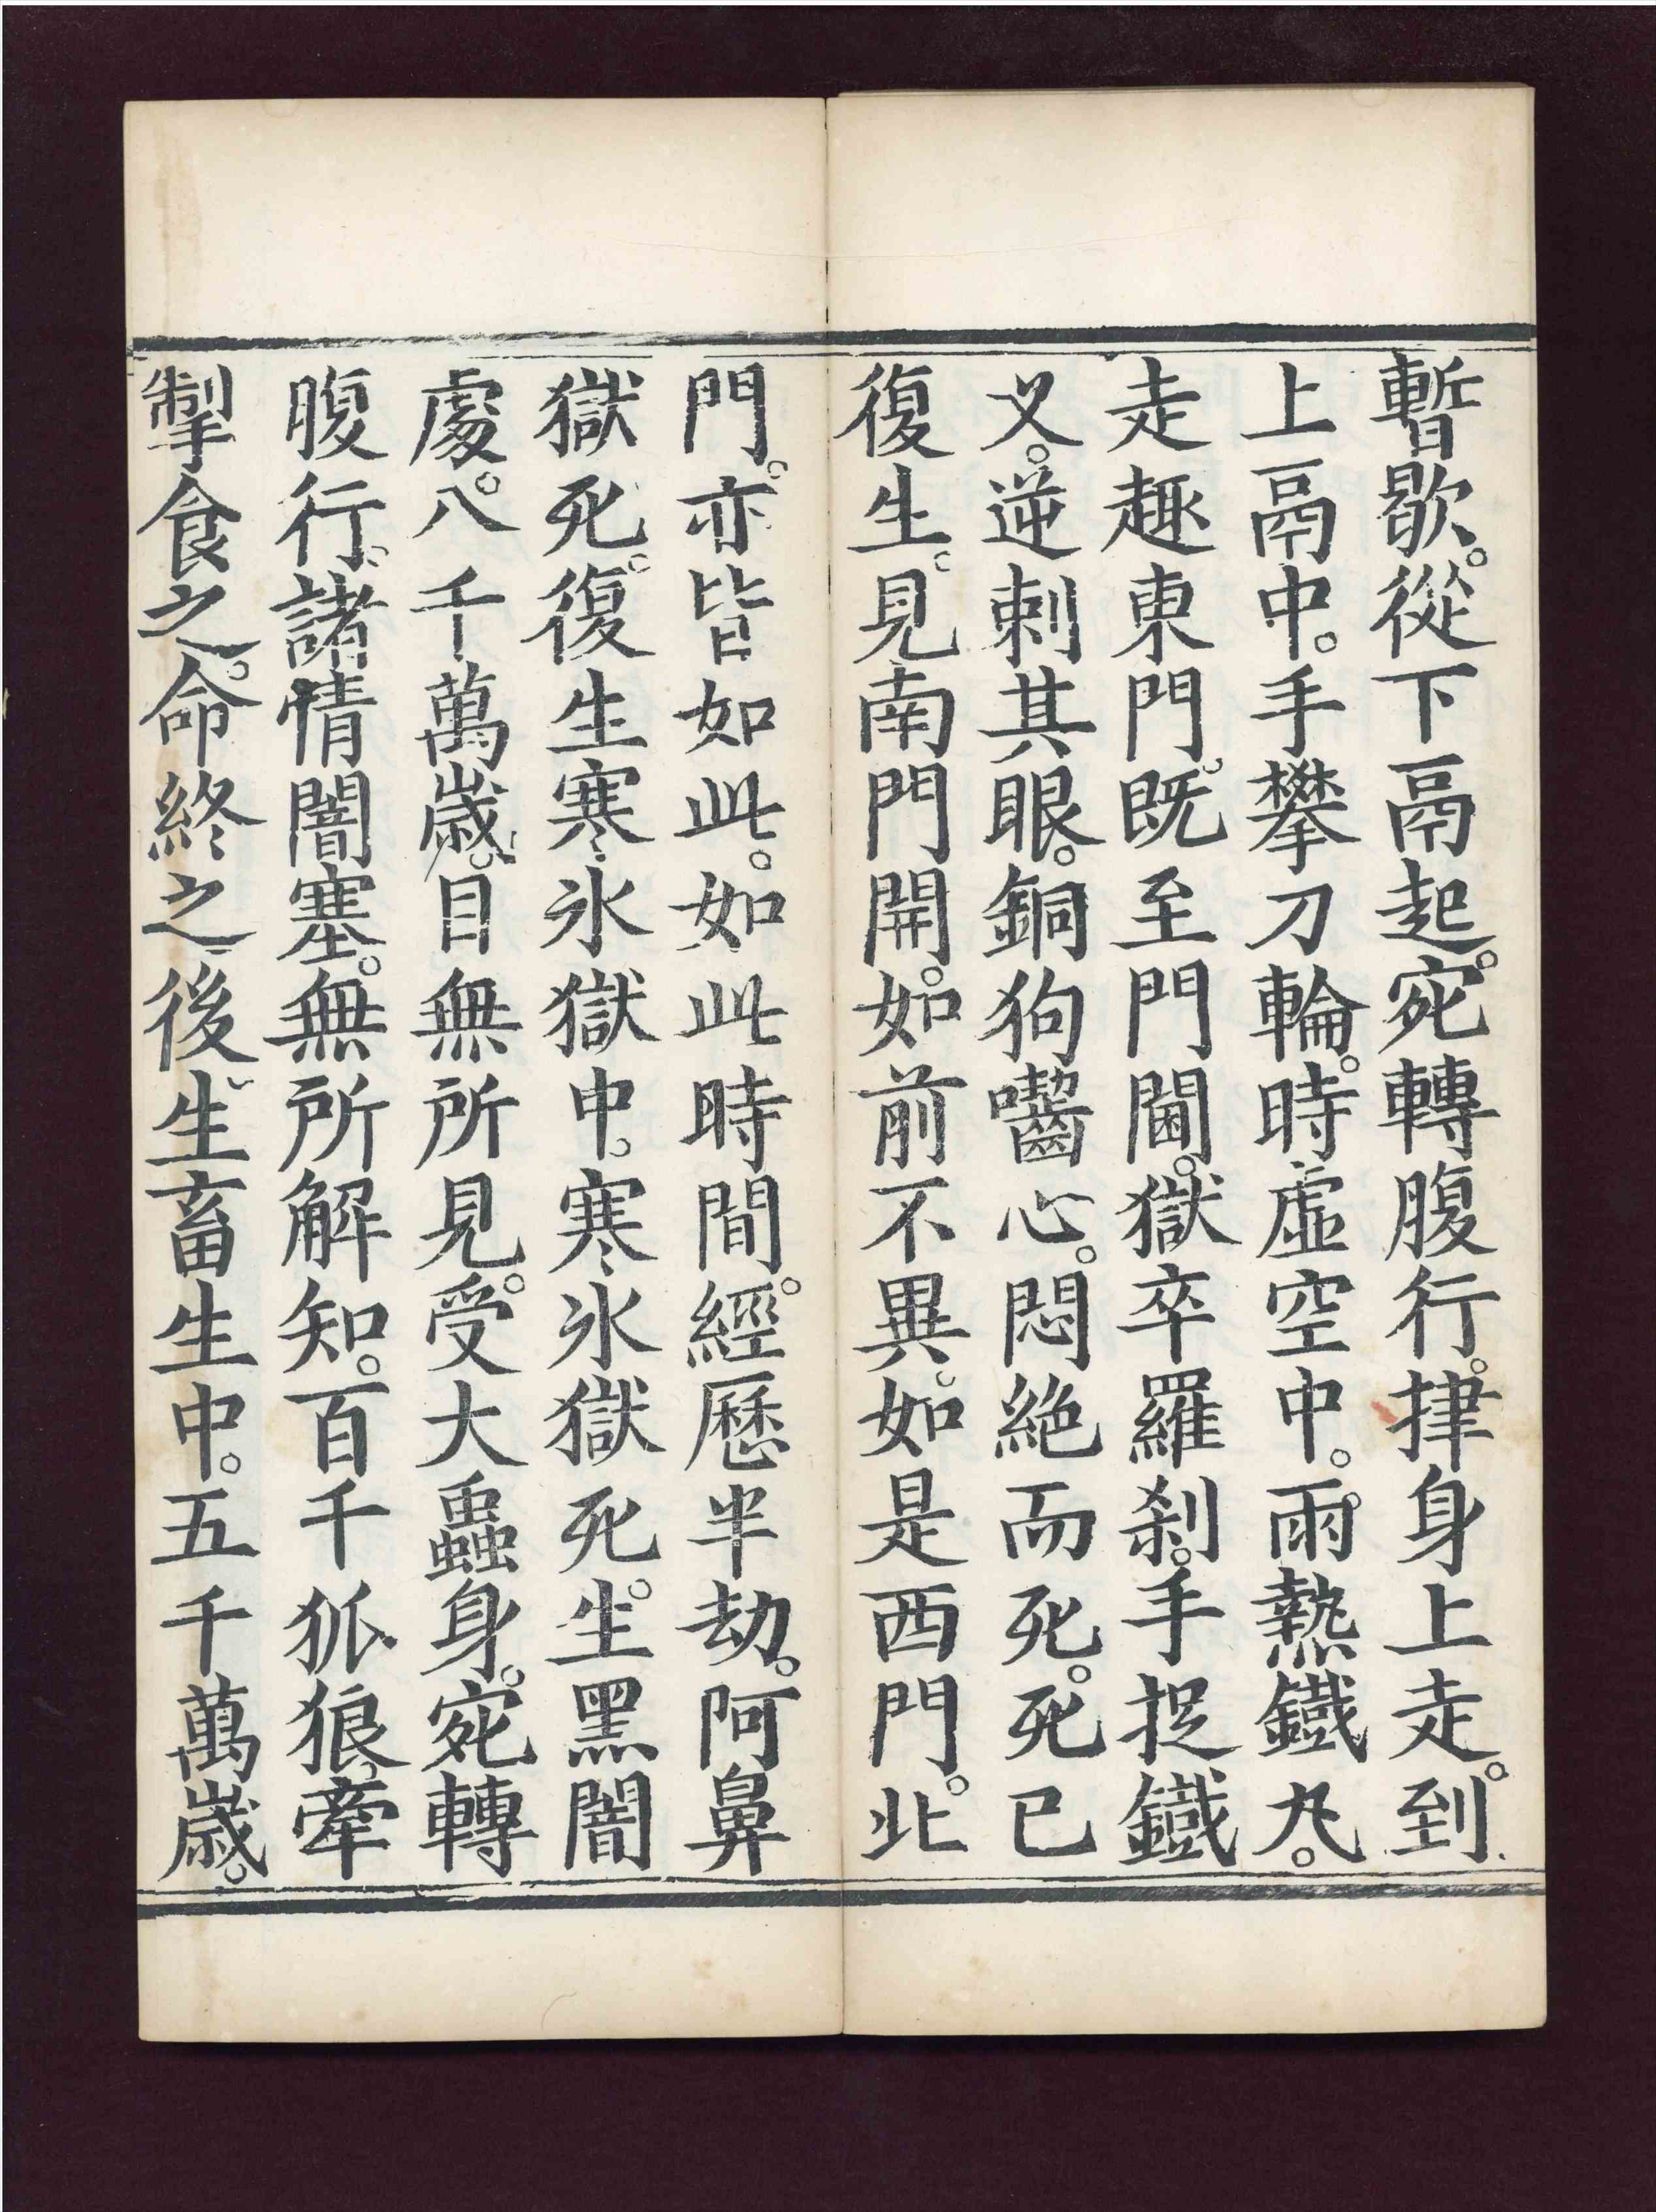 暫歇。從下鬲起。宛轉腹行。揵身上走。到
上鬲中。手攀刀輪。時虛空中。雨熱鐵丸。
走趣東門。既至門閫。獄卒羅刹。手捉鐵
叉。逆刺其眼。銅狗嚙心。悶絕而死。死已
復生。見南門開。如前不異。如是西門。北
門。亦皆如此。如此時間。經歷半劫。阿鼻
獄死。復生寒氷獄中。寒氷獄死。生黑闇
處。八千萬歲。目無所見。受大蟲身。宛轉
腹行。諸情闇塞。無所解知。百千狐狼。牽
掣食之。命終之後。生畜生中。五千萬歲。